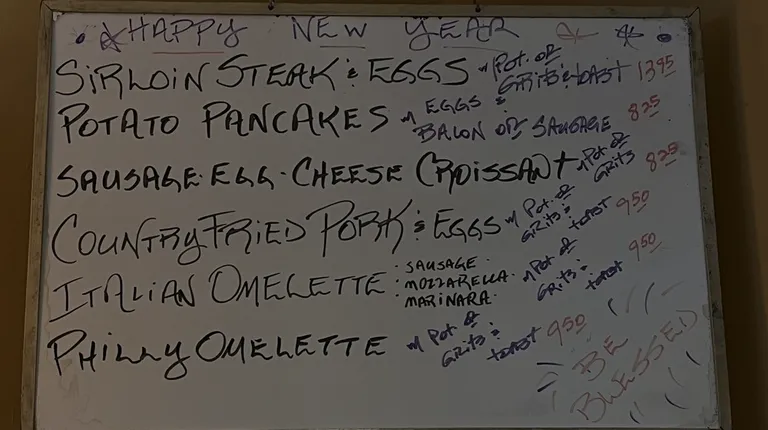 HAPPY NEW YEAR
SIRLOIN STEAK & EGGS w/ Pot. or GRITS & toast 13.95
POTATO PANCAKES w/ EGGS & BACON or SAUSAGE 8.25
SAUSAGE·EGG·CHEESE CROISSANT w/ Pot. or GRITS 8.25
COUNTRY FRIED PORK & EGGS w/ Pot. or GRITS & toast 9.50
ITALIAN OMELETTE · SAUSAGE· · MOZZARELLA· MARINARA· w/ Pot. or GRITS & toast 9.50
PHILLY OMELETTE w/ Pot. or GRITS & toast 9.50
BE
BLESSED